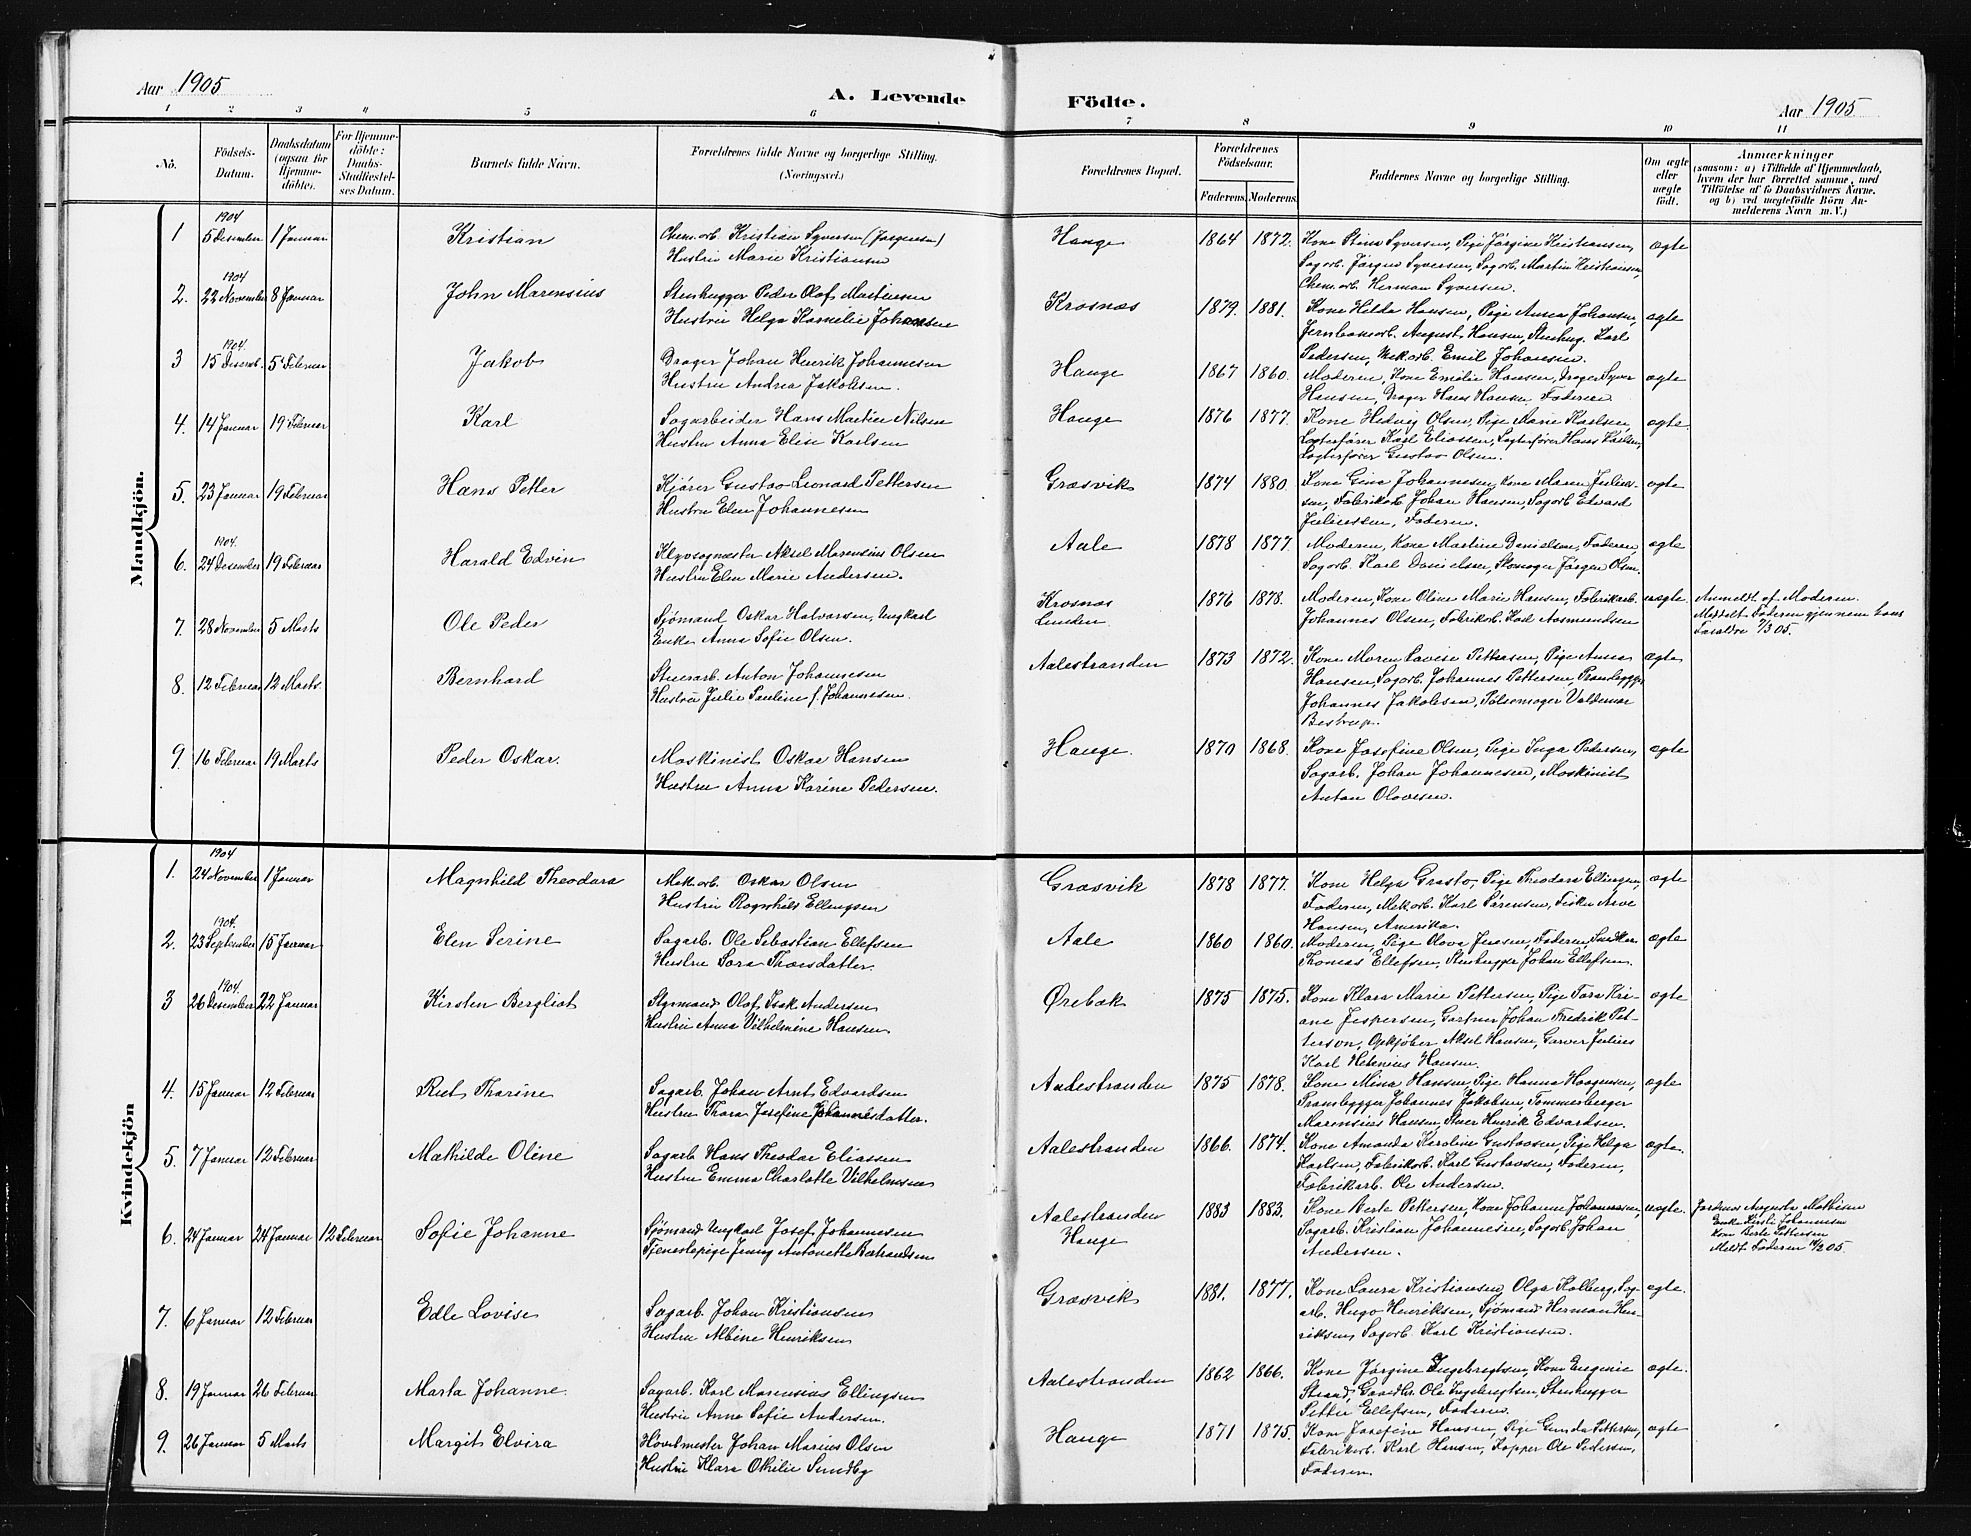 Aar 1905
A. Levende Födte.
Aar 1905
1 2 3 4 5 6 7 8 9 10 11
No.
Födsels-Datum.
Daabsdatum (ogsaa for Hjemmedöbte).
For Hjemmedöbte: Daabs-Stadfæstelses Datum.
Barnets fulde Navn.
Forældrenes fulde Navne og borgerlige Stilling. (Næringsvei.)
Forældrenes Bopæl.
Forældrenes Födselsaar.
Faderens. Moderens.
Faddernes Navne og borgerlige Stilling.
Om ægte eller uægte födt.
Anmærkninger
(saasom: a) i Tilfælde af Hjemmedaab, hvem der har forrettet samme, med Tilföielse af to Daabsvidners Navne, og b) ved uægtefödte Börn Anmelderens Navn m. V.)
Mandkjön.
1 1904 5 Desember 1 Januar Kristian Chem. arb. Kristian Syversen (Jørgensen) Hange 1864 1872. Kone Stina Syversen, Pige Jørgine Kristiansen, ægte
Hustru Marie Kristiansen Sagarb. Jørgen Syversen, Sagarb. Martin Kristiansen,
Chem. arb. Herman Syversen.
2. 1904 22 November 8 Januar John Marensius Stenhugger Peder Olaf Martinsen Krosnæs 1879. 1881. Kone Hilda Hansen, Pige Anna Johansen, ægte
Hustru Helga Kornelie Johansen Jernbanearb. August Hansen, Stenhug. Karl
Pedersen, Mek. arb. Emil Johansen.
3 1904. 15 Desemb. 5 Februar Jakob Drager Johan Henrik Johannesen Hange 1867 1860. Moderen, Kone Emilie Hansen, Drager Syver ægte
Hustru Andrea Jakobsen. Hansen, Drager Hans Hansen Faderen
4. 14 Januar 19 Februar Karl Sagarbeider Hans Martin Nilsen Hange 1876 1877. Kone Hedvig Olsen, Pige Marie Karlsen, ægte.
Hustru Anna Elise Karlsen Lægterfører Karl Eliassen, Lægterfører Hans Karlsen,
Lægterfører Gustav Olsen.
5. 23 Januar 19 Februar Hans Petter Kjører Gustav Leonard Pettersen Græsvik 1874 1880. Kone Gina Johannesen, Kone Maren Julius- ægte
Hustru Elen Johannesen sen, Fabrikarb. Johan Hansen, Sagarb. Edvard
Juliussen, Faderen.
6. 1904. 24 Desember 19 Februar Harald Edvin Aksel Marensius Olsen Aale 1878 1877. Moderen, Kone Martine Danielsen, Faderen, ægte
Hustru Elen Marie Andersen. Sagarb. Karl Danielsen, Skomager Jørgen Olsen.
7. 28 November 5 Marts Ole Peder Sjømand Oskar Halvorsen, Ungkarl Krosnæs 1876 1878. Moderen, Kone Oline Marie Hansen, Fabrikarb. uægte Anmeldt af Moderen.
Enke Anna Sofie Olsen. Lunden. Johannes Olsen, Fabrikarb. Karl Aasmundsen Meddelt Faderen gjennem hans
Forældre 7/3 05.
8. 12 Februar 12 Marts. Bernhard Stuerarb. Anton Johannesen Aalestranden 1873 1872. Kone Maren Lovise Pettersen, Pige Anna ægte
Hustru Julie Pauline f. Johannesen. Hansen, Sagarb. Johannes Pettersen, Prambygger
Johannes Jakobsen, Pølsemager Valdemar
Bestrup.
9. 16 Februar 19 Marts Peder Oskar. Maskinist Oskar Hansen Hange. 1870 1868. Kone Josefine Olsen, Pige Inga Pedersen, ægte
Hustru Anna Karine Pedersen. Sagarb. Johan Johannesen, Maskinist
Anton Olavesen.
Kvindekjön
1. 1904 24 November 1 Januar Magnhild Theodora Mek. arb. Oskar Olsen Græsvik 1878 1877. Kone Helga Græsto, Pige Theodora Ellingsen, ægte
Hustru Ragnhild Ellingsen Faderen, Mek. arb. Karl Sørensen, Fisker Arve
Hansen, Amerika.
2. 1904. 23 September 15 Januar Elen Serine Sagarb. Ole Sebastian Ellefsen Aale 1860 1860. Moderen, Pige Olava Jensen, Faderen, Snedker ægte
Hustru Sara Thoresdatter. Thomas Ellefsen, Stenhugger Johan Ellefsen.
3 1904. 26 Desember 22 Januar Kirsten Bergliot Styrmand Olaf Isak Andersen Ørebæk 1875 1875. Kone Klara Marie Pettersen, Pige Tora Kri- ægte
Hustru Anna Vilhelmine Hansen ane Jespersen, Gartner Johan Fredrik Pet-
terson, Opkjøber Aksel Hansen, Garver Julius
Karl Helenius Hansen.
4. 15 Januar 12 Februar Rut Tharine Sagarb. Johan Arnt Edvardsen Aalestranden 1875 1878. Kone Mina Hansen, Pige Hanna Haagensen, ægte
Hustru Thora Josefine Johannesdatter. Prambygger Johannes Jakobsen, Tømmerberger
Marensius Hansen, Stuer Henrik Edvardsen.
5. 7 Januar 12 Februar Mathilde Oline Sagarb Hans Theodor Eliassen Aalestranden 1866. 1874. Kone Amanda Karoline Gustavsen, Pige Helga ægte.
Hustru Emma Charlotte Vilhelmsen Karlsen, Fabrikarb. Karl Gustavsen, Faderen,
Fabrikarb. Ole Andersen.
6. 24 Januar 24 Januar 12 Februar Sofie Johanne Sjømand Ungkarl Josef Johannesen Aalestranden 1883 1883. Kone Berte Pettersen, Kone Johanne Johannesen, uægte. Jordmor Augusta Mathisen
Tjenestepige Jenny Antonette Bertrandsen Hange Sagarb. Kristian Johannesen, Sagarb Johan Enke Kirsti Johannesen
Andersen. Kone Berte Pettersen
Meldt Faderen 14/2 05.
7. 6 Januar 12 Februar Edle Lovise Sagarb. Johan Kristiansen Græsvik 1881. 1877. Kone Laura Kristiansen, Olga Kolberg, Sag- ægte.
Hustru Albine Henriksen arb. Hugo Henriksen, Sjømand Herman Hen-
riksen, Sagarb. Karl Kristiansen.
8. 19 Januar 26 Februar Marta Johanne Sagarb. Karl Marensius Ellingsen Aalestranden 1862 1866. Kone Jørgine Ingebregtsen, Kone Eugenie ægte.
Hustru Anna Sofie Andersen. Strand, Gaardbr. Ole Ingebregtsen, Stenhugger
Petter Ellefsen, Faderen.
9. 26 Januar 5 Marts Margit Elvira Høvelmester Johan Marius Olsen Hange 1871 1875. Kone Josefine Hansen, Pige Gunda Pettersen, ægte
Hustru Klara Othilie Sundby Fabrikarb. Karl Hansen, Kopper Ole Pedersen,
Faderen.